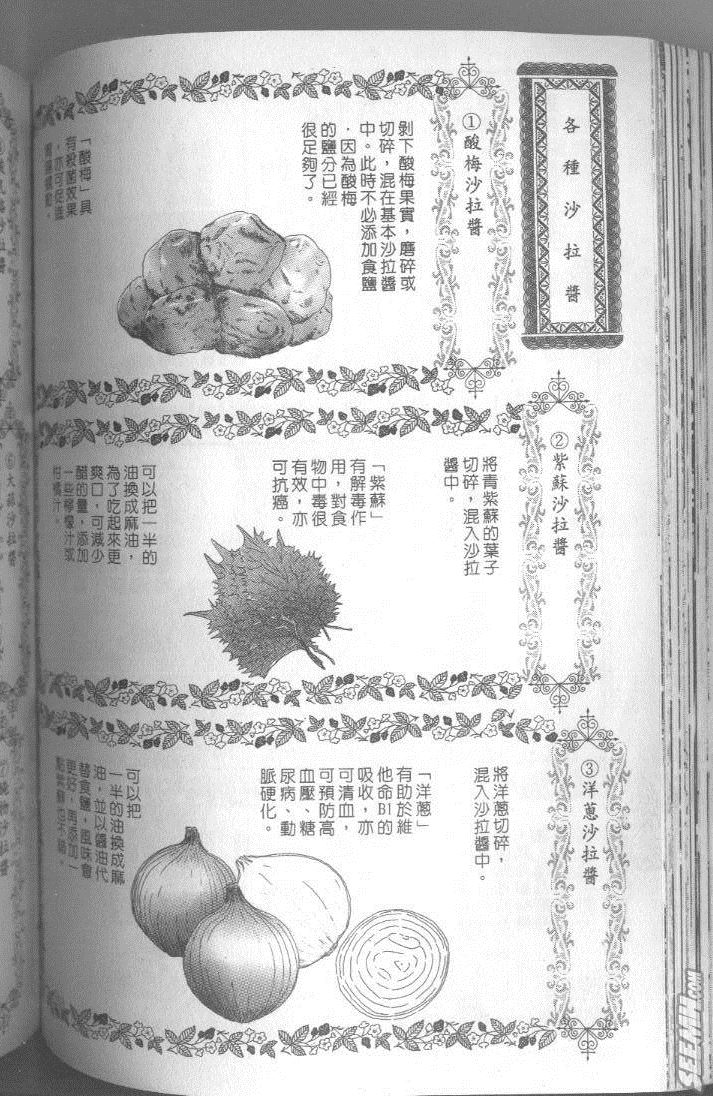 各種沙拉醬
①酸梅沙拉醬
剝下酸梅果實，磨碎或
切碎，混在基本沙拉醬
中。此時不必添加食鹽
，因為酸梅
的鹽分已經
很足夠了。
「酸梅」具
有殺菌效果
，亦可促進
②紫蘇沙拉醬
將青紫蘇的葉子
切碎，混入沙拉
醬中。
「紫蘇」
有解毒作
用，對食
物中毒很
有效，亦
可抗癌。
可以把一半的
油換成麻油，
為了吃起來更
爽口，可減少
醋的量，添加
一些檸檬汁或
柑橘汁。
③洋蔥沙拉醬
將洋蔥切碎，
混入沙拉醬中。
「洋蔥」
有助於維
他命B1的
吸收，亦
可清血，
可預防高
血壓、糖
尿病、動
脈硬化。
可以把
一半的油換成麻
油，並以醬油代
替食鹽，風味會
更好，再添加一
點紫蘇也可以。
沙拉醬
⑥大蒜沙拉醬
沙拉醬
SEEMH.COM